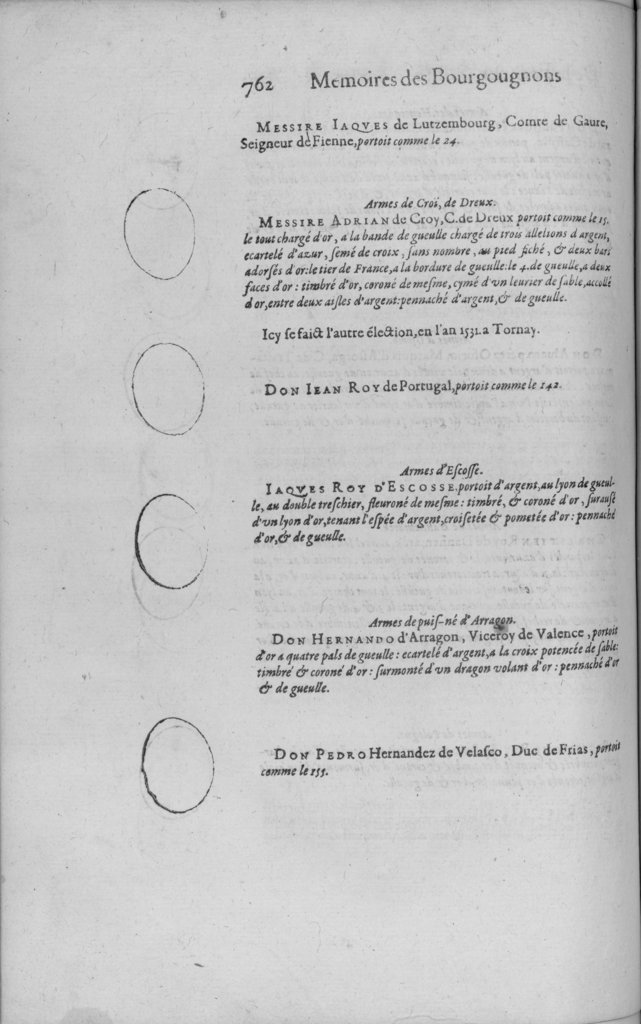 762 Memoires des Bourgougnons
MESSIRE IAQVES de Lutzembourg, Comte de Gaure,
Seigneur de Fienne, portoit comme le 24.
Armes de Croï, de Dreux.
MESSIRE ADRIAN de Croy, C. de Dreux portoit comme le 15.
le tout chargé d'or, a la bande de gueulle chargé de trois allelions d'argent,
ecartelé d'azur, semé de croix, sans nombre, au pied fiché, & deux bars
adorsés d'or: le tier de France, a la bordure de gueulle: le 4. de gueulle, a deux
faces d'or: timbré d'or, coroné de mesme, cymé d'vn leurier de sable, accollé
d'or, entre deux aisles d'argent: pennaché d'argent, & de gueulle.
Icy se faict l'autre élection, en l'an 1531. a Tornay.
DON IEAN ROY de Portugal, portoit comme le 142.
Armes d'Escosse.
IAQVES ROY D'ESCOSSE, portoit d'argent, au lyon de gueul-
le, au double treschier, fleuroné de mesme: timbré, & coroné d'or, surausé
d'vn lyon d'or, tenant l'espée d'argent, croisetée & pometée d'or: pennaché
d'or, & de gueulle.
Armes de puis-né d'Arragon.
DON HERNANDO d'Arragon, Viceroy de Valence, portoit
d'or a quatre pals de gueulle: ecartelé d'argent, a la croix potencée de sable:
timbré & coroné d'or: surmonté d'vn dragon volant d'or: pennaché d'or
& de gueulle.
DON PEDRO Hernandez de Velasco, Duc de Frias, portoit
comme le 155.